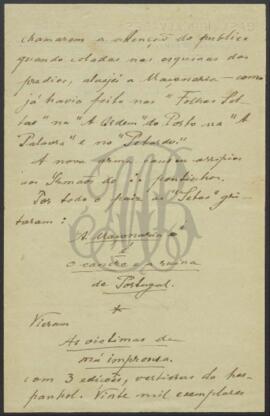 chamarem a attenção do publico
quando coladas nas esquinas dos
predios, ataquei a Maçonaria – como
já havia feito nas "Folhas Sol-
tas" na "A Ordem" do Porto na "A
Palavra" e no "Petardo".
A nova arma causou arripios
aos Irmãos dos ∴ pontinhos.
Por todo o paiz as "Setas" gri-
taram:
A Maçonaria é
o cancro e a ruina
de Portugal.
Vieram
As victimas da
má imprensa.
com 3 edições, vertidas do hes-
panhol. Vinte mil exemplares